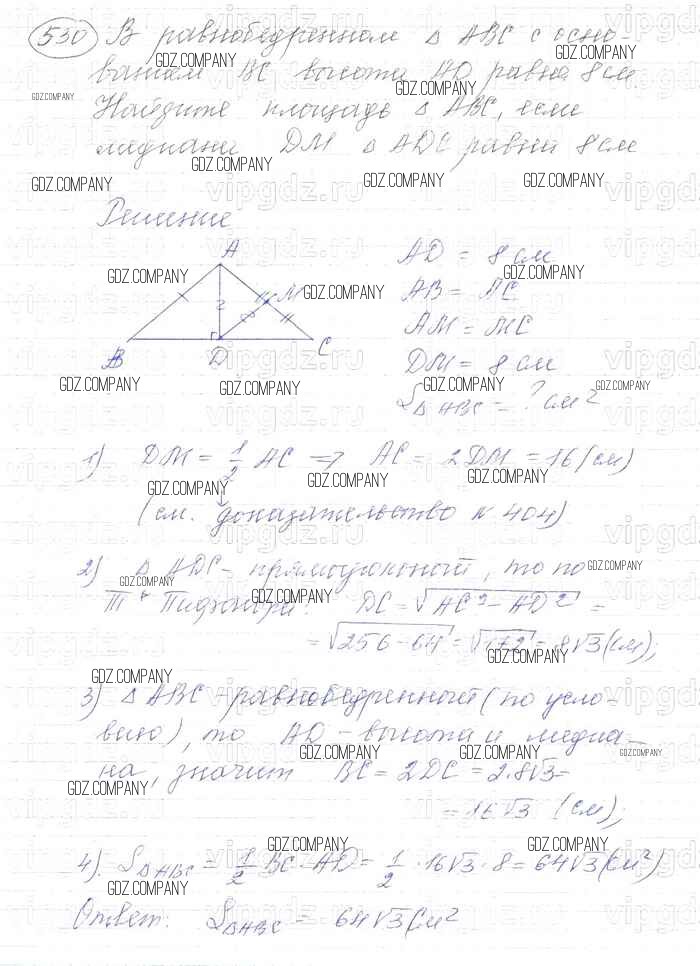 530 В равнобедренном △ ABC с осно-
ванием BC высота AD равна 8 см.
Найдите площадь △ ABC, если
медиана DM △ ADC равна 8 см
Решение
A
M
B
D
C
AD = 8 см
AB = AC
AM = MC
DM = 8 см
S△ABC = ? см²
1) DM = 1/2 AC => AC = 2DM = 16 (см)
(см. доказательство № 404)
2) △ ADC - прямоугольный, то по
т. Пифагора: DC = √AC² - AD² =
= √256 - 64 = √192 = 8√3 (см);
3) △ ABC - равнобедренный (по усло-
вию), то AD - высота и медиа-
на, значит BC = 2DC = 2·8√3 =
= 16√3 (см);
4) S△ABC = 1/2 BC · AD = 1/2 · 16√3 · 8 = 64√3 (см²)
Ответ: S△ABC = 64√3 см²
GDZ.COMPANY
vipgdz.ru